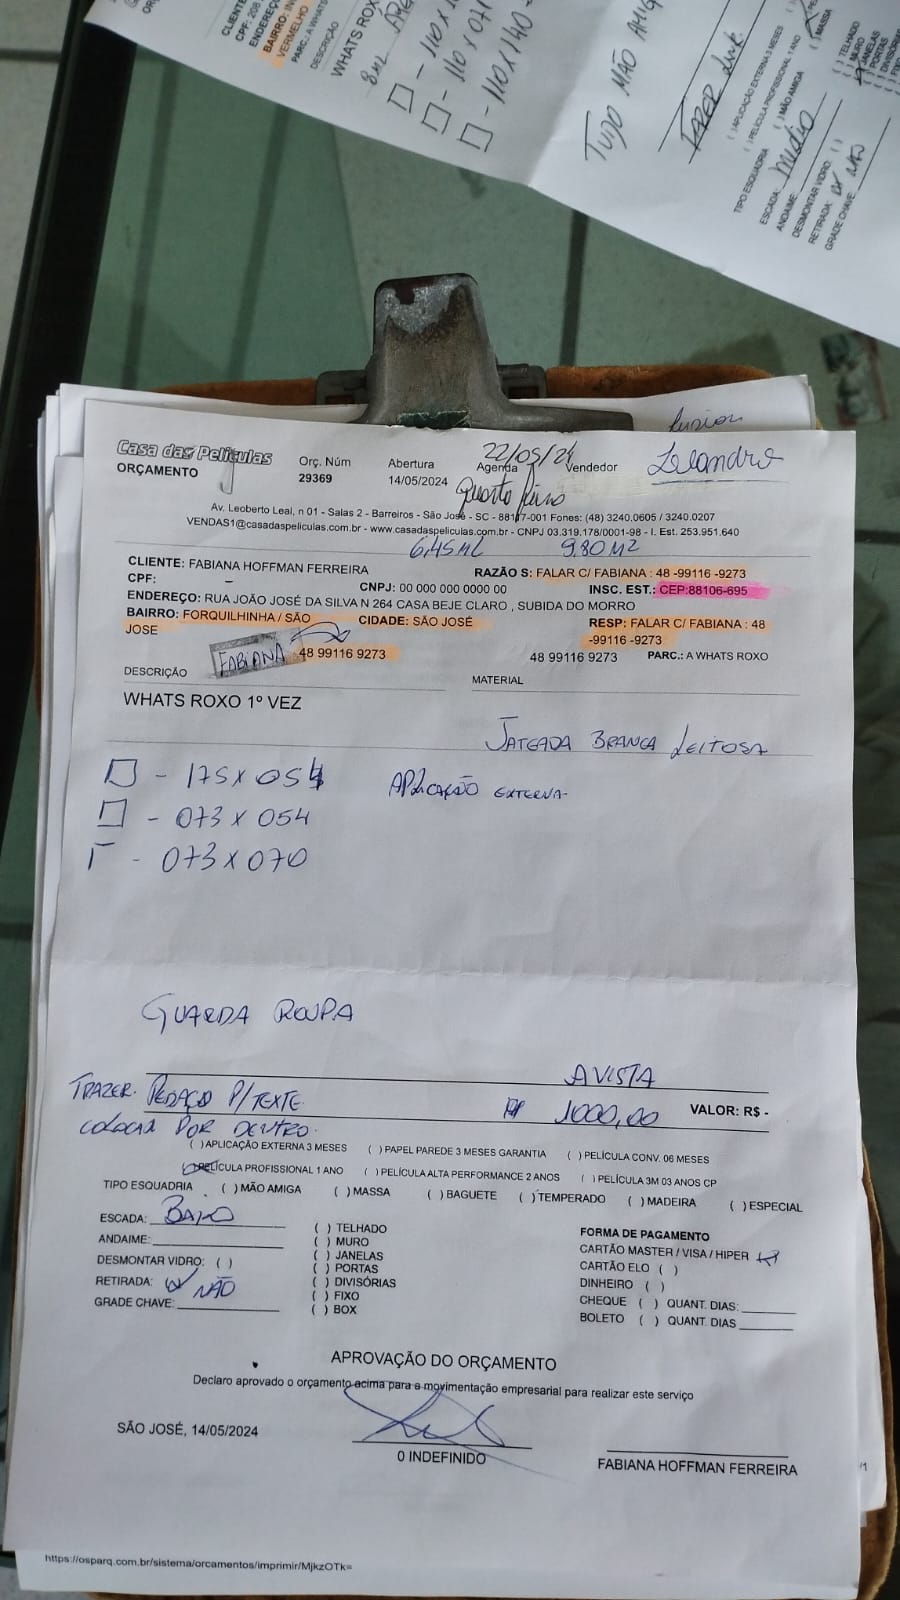 CLIENTE
CPF: 208
ENDEREÇO
BAIRRO: IN
VERMELHO
PARC.: A WHATS
DESCRIÇÃO
WHATS ROX
110 X 071
110 X 140
TUDO MÃO AMIG
FAZER
( ) APLICAÇÃO EXTERNA 3 MESES
( ) PELÍCULA PROFISSIONAL 1 ANO
( ) MÃO AMIGA
( ) MASSA
TIPO ESQUADRIA
ESCADA: Médio
ANDAIME:
DESMONTAR VIDRO: ( )
RETIRADA: NÃO
GRADE CHAVE:
( ) TELHADO
MURO
JANELAS
PORTAS
DIVISÓR
Leandro
22/05/24
Casa das Películas
ORÇAMENTO
Orç. Núm
29369
Abertura
14/05/2024
Agenda
Vendedor
Quarta feira
Av. Leoberto Leal, n 01 - Salas 2 - Barreiros - São José - SC - 88117-001 Fones: (48) 3240.0605 / 3240.0207
VENDAS1@casadaspeliculas.com.br - www.casadaspeliculas.com.br - CNPJ 03.319.178/0001-98 - I. Est. 253.951.640
6,45ML 9,80M2
CLIENTE: FABIANA HOFFMAN FERREIRA
RAZÃO S: FALAR C/ FABIANA : 48 -99116 -9273
CPF:
CNPJ: 00 000 000 0000 00
INSC. EST.: CEP:88106-695
ENDEREÇO: RUA JOÃO JOSÉ DA SILVA N 264 CASA BEJE CLARO , SUBIDA DO MORRO
BAIRRO: FORQUILHINHA / SÃO JOSE
CIDADE: SÃO JOSÉ
RESP: FALAR C/ FABIANA : 48 -99116 -9273
FABIANA 48 99116 9273
48 99116 9273
PARC.: A WHATS ROXO
DESCRIÇÃO
MATERIAL
WHATS ROXO 1º VEZ
JATEADA BRANCA LEITOSA
- 175 X 054
APLICAÇÃO EXTERNA-
- 073 X 054
- 073 X 070
GUARDA ROUPA
A VISTA
TRAZER PEDAÇO P/ TEXTE
R$ 1000,00
VALOR: R$ -
COLOCAR POR DENTRO.
( ) APLICAÇÃO EXTERNA 3 MESES ( ) PAPEL PAREDE 3 MESES GARANTIA ( ) PELÍCULA CONV. 06 MESES
PELÍCULA PROFISSIONAL 1 ANO ( ) PELÍCULA ALTA PERFORMANCE 2 ANOS ( ) PELÍCULA 3M 03 ANOS CP
TIPO ESQUADRIA ( ) MÃO AMIGA ( ) MASSA ( ) BAGUETE ( ) TEMPERADO ( ) MADEIRA ( ) ESPECIAL
ESCADA: BAIXO
ANDAIME:
DESMONTAR VIDRO: ( )
RETIRADA: NÃO
GRADE CHAVE:
( ) TELHADO
( ) MURO
( ) JANELAS
( ) PORTAS
( ) DIVISÓRIAS
( ) FIXO
( ) BOX
FORMA DE PAGAMENTO
CARTÃO MASTER / VISA / HIPER
CARTÃO ELO ( )
DINHEIRO ( )
CHEQUE ( ) QUANT. DIAS:
BOLETO ( ) QUANT. DIAS
APROVAÇÃO DO ORÇAMENTO
Declaro aprovado o orçamento acima para a movimentação empresarial para realizar este serviço
SÃO JOSÉ, 14/05/2024
0 INDEFINIDO
FABIANA HOFFMAN FERREIRA
/1
https://osparq.com.br/sistema/orcamentos/imprimir/MjkzOTk=